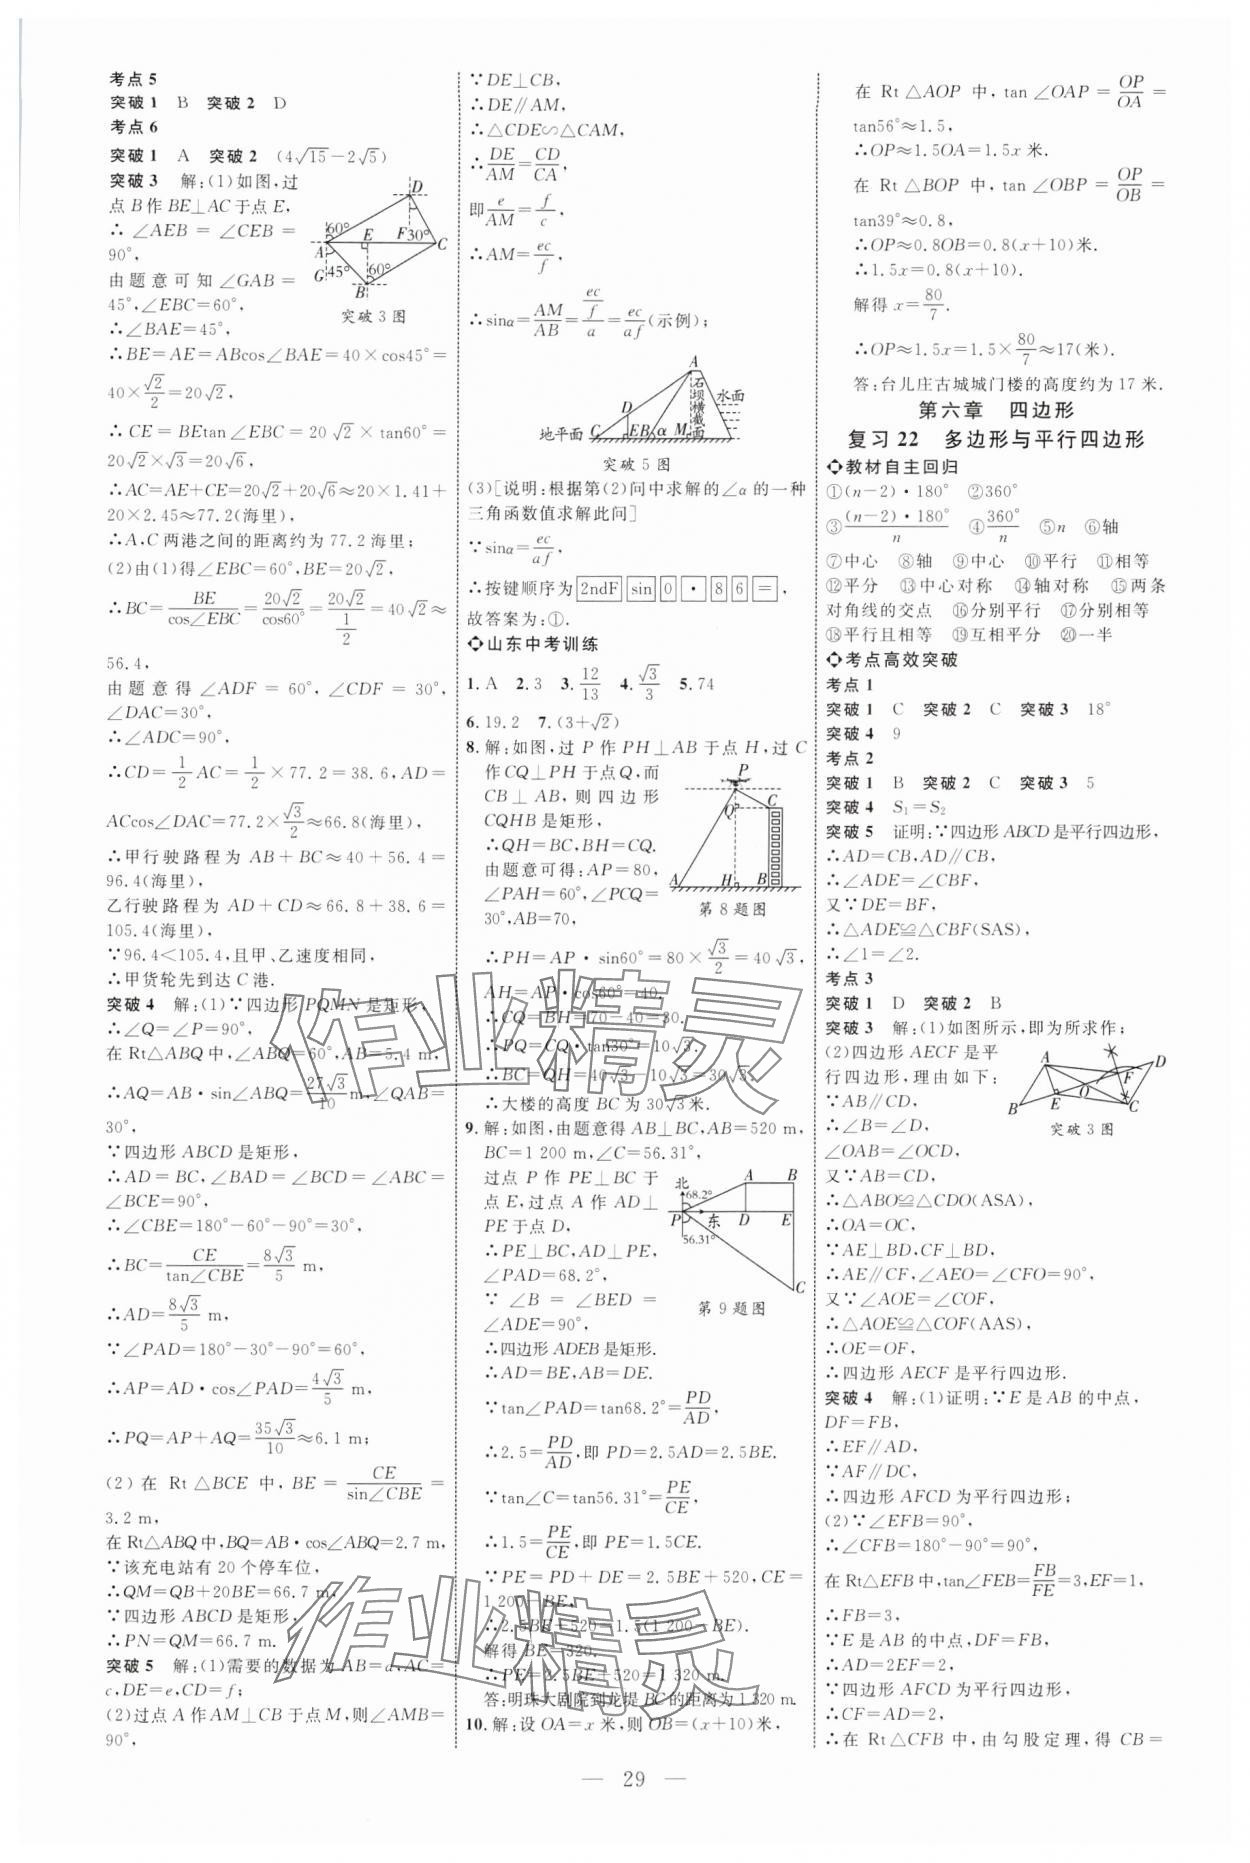 考点 5
突破 1  B  突破 2  D
考点 6
突破 1  A  突破 2  (4√15－2√5)
突破 3  解:(1)如图,过
点 B 作 BE⊥AC 于点 E,
∴ ∠AEB = ∠CEB =
90°,
由题意可知 ∠GAB =
45°,∠EBC=60°,
∴∠BAE=45°,
D
60°
E
F 30°
A
C
G 45°
60°
B
突破 3 图
∴BE=AE=ABcos∠BAE=40×cos45°=
40×√2/2=20√2,
∴ CE = BEtan ∠EBC = 20 √2 × tan60° =
20√2×√3=20√6,
∴AC=AE+CE=20√2+20√6≈20×1.41+
20×2.45≈77.2(海里),
∴A,C 两港之间的距离约为 77.2 海里;
(2)由(1)得∠EBC=60°,BE=20√2,
∴BC=BE/cos∠EBC=20√2/cos60°=20√2/(1/2)=40√2≈
56.4,
由题意得 ∠ADF = 60°,∠CDF = 30°,
∠DAC=30°,
∴∠ADC=90°,
∴CD=1/2 AC=1/2×77.2=38.6,AD=
ACcos∠DAC=77.2×√3/2≈66.8(海里),
∴甲行驶路程为 AB+BC≈40+56.4=
96.4(海里),
乙行驶路程为 AD+CD≈66.8+38.6=
105.4(海里),
∵96.4<105.4,且甲、乙速度相同,
∴甲货轮先到达 C 港.
突破 4  解:(1)∵四边形 PQMN 是矩形,
∴∠Q=∠P=90°,
在 Rt△ABQ 中,∠ABQ=60°,AB=5.4 m,
∴AQ=AB·sin∠ABQ=27√3/10 m,∠QAB=
30°,
∵四边形 ABCD 是矩形,
∴AD=BC,∠BAD=∠BCD=∠ABC=
∠BCE=90°,
∴∠CBE=180°－60°－90°=30°,
∴BC=CE/tan∠CBE=8√3/5 m,
∴AD=8√3/5 m,
∵∠PAD=180°－30°－90°=60°,
∴AP=AD·cos∠PAD=4√3/5 m,
∴PQ=AP+AQ=35√3/10≈6.1 m;
(2) 在 Rt △BCE 中, BE = CE/sin∠CBE =
3.2 m,
在 Rt△ABQ 中,BQ=AB·cos∠ABQ=2.7 m,
∵该充电站有 20 个停车位,
∴QM=QB+20BE=66.7 m,
∵四边形 ABCD 是矩形,
∴PN=QM=66.7 m.
突破 5  解:(1)需要的数据为 AB=a,AC=
c,DE=e,CD=f;
(2)过点 A 作 AM⊥CB 于点 M,则∠AMB=
90°,
∵DE⊥CB,
∴DE∥AM,
∴△CDE∽△CAM,
∴DE/AM=CD/CA,
即e/AM=f/c,
∴AM=ec/f,
∴sinα=AM/AB=(ec/f)/a=ec/af(示例);
A
石坝横截面
水面
D
地平面
C
E B α M
突破 5 图
(3)[说明:根据第(2)问中求解的∠α 的一种
三角函数值求解此问]
∵sinα=ec/af,
∴按键顺序为 2ndF sin 0 · 8 6 = ,
故答案为:①.
山东中考训练
1. A  2. 3  3. 12/13  4. √3/3  5. 74
6. 19.2  7. (3+√2)
8. 解:如图,过 P 作 PH⊥AB 于点 H,过 C
作 CQ⊥PH 于点 Q,而
CB ⊥ AB, 则 四 边 形
CQHB 是矩形,
∴QH=BC,BH=CQ.
由题意可得:AP=80,
∠PAH=60°,∠PCQ=
30°,AB=70,
P
Q
C
A
H
B
第 8 题图
∴PH=AP·sin60°=80×√3/2=40√3,
AH=AP·cos60°=40,
∴CQ=BH=70－40=30,
∴PQ=CQ·tan30°=10√3.
∴BC=QH=40√3－10√3=30√3,
∴大楼的高度 BC 为 30√3米.
9. 解:如图,由题意得 AB⊥BC,AB=520 m,
BC=1 200 m,∠C=56.31°,
过点 P 作 PE⊥BC 于
点 E,过点 A 作 AD⊥
PE 于点 D,
∴PE⊥BC,AD⊥PE,
∠PAD=68.2°,
∵ ∠B = ∠BED =
∠ADE=90°,
北
68.2°
A
B
P
东
D
E
56.31°
C
第 9 题图
∴四边形 ADEB 是矩形.
∴AD=BE,AB=DE.
∵tan∠PAD=tan68.2°=PD/AD,
∴2.5=PD/AD,即 PD=2.5AD=2.5BE.
∵tan∠C=tan56.31°=PE/CE,
∴1.5=PE/CE,即 PE=1.5CE.
∵PE=PD+DE=2.5BE+520,CE=
1 200－BE,
∴2.5BE+520=1.5(1 200－BE).
解得 BE=320.
∴PE=2.5BE+520=1 320 m.
答:明珠大剧院到龙堤 BC 的距离为 1 320 m.
10. 解:设 OA=x 米,则 OB=(x+10)米,
在 Rt △AOP 中, tan ∠OAP = OP/OA =
tan56°≈1.5,
∴OP≈1.5OA=1.5x 米.
在 Rt △BOP 中, tan ∠OBP = OP/OB =
tan39°≈0.8,
∴OP≈0.8OB=0.8(x+10)米.
∴1.5x=0.8(x+10).
解得 x=80/7.
∴OP≈1.5x=1.5×80/7≈17(米).
答:台儿庄古城城门楼的高度约为 17 米.
第六章  四边形
复习 22  多边形与平行四边形
教材自主回归
①(n－2)·180°  ②360°
③(n－2)·180°/n  ④360°/n  ⑤n  ⑥轴
⑦中心  ⑧轴  ⑨中心  ⑩平行  ⑪相等
⑫平分  ⑬中心对称  ⑭轴对称  ⑮两条
对角线的交点  ⑯分别平行  ⑰分别相等
⑱平行且相等  ⑲互相平分  ⑳一半
考点高效突破
考点 1
突破 1  C  突破 2  C  突破 3  18°
突破 4  9
考点 2
突破 1  B  突破 2  C  突破 3  5
突破 4  S₁=S₂
突破 5  证明:∵四边形 ABCD 是平行四边形,
∴AD=CB,AD∥CB,
∴∠ADE=∠CBF,
又∵DE=BF,
∴△ADE≌△CBF(SAS),
∴∠1=∠2.
考点 3
突破 1  D  突破 2  B
突破 3  解:(1)如图所示,即为所求作;
(2)四边形 AECF 是平
行四边形,理由如下:
∵AB∥CD,
∴∠B=∠D,
∠OAB=∠OCD,
又∵AB=CD,
A
D
F
O
B
E
C
突破 3 图
∴△ABO≌△CDO(ASA),
∴OA=OC,
∵AE⊥BD,CF⊥BD,
∴AE∥CF,∠AEO=∠CFO=90°,
又∵∠AOE=∠COF,
∴△AOE≌△COF(AAS),
∴OE=OF,
∴四边形 AECF 是平行四边形.
突破 4  解:(1)证明:∵E 是 AB 的中点,
DF=FB,
∴EF∥AD,
∵AF∥DC,
∴四边形 AFCD 为平行四边形;
(2)∵∠EFB=90°,
∴∠CFB=180°－90°=90°,
在 Rt△EFB 中,tan∠FEB=FB/FE=3,EF=1,
∴FB=3,
∵E 是 AB 的中点,DF=FB,
∴AD=2EF=2,
∵四边形 AFCD 为平行四边形,
∴CF=AD=2,
∴在 Rt△CFB 中,由勾股定理,得 CB=
— 29 —
作业精灵
作业精灵